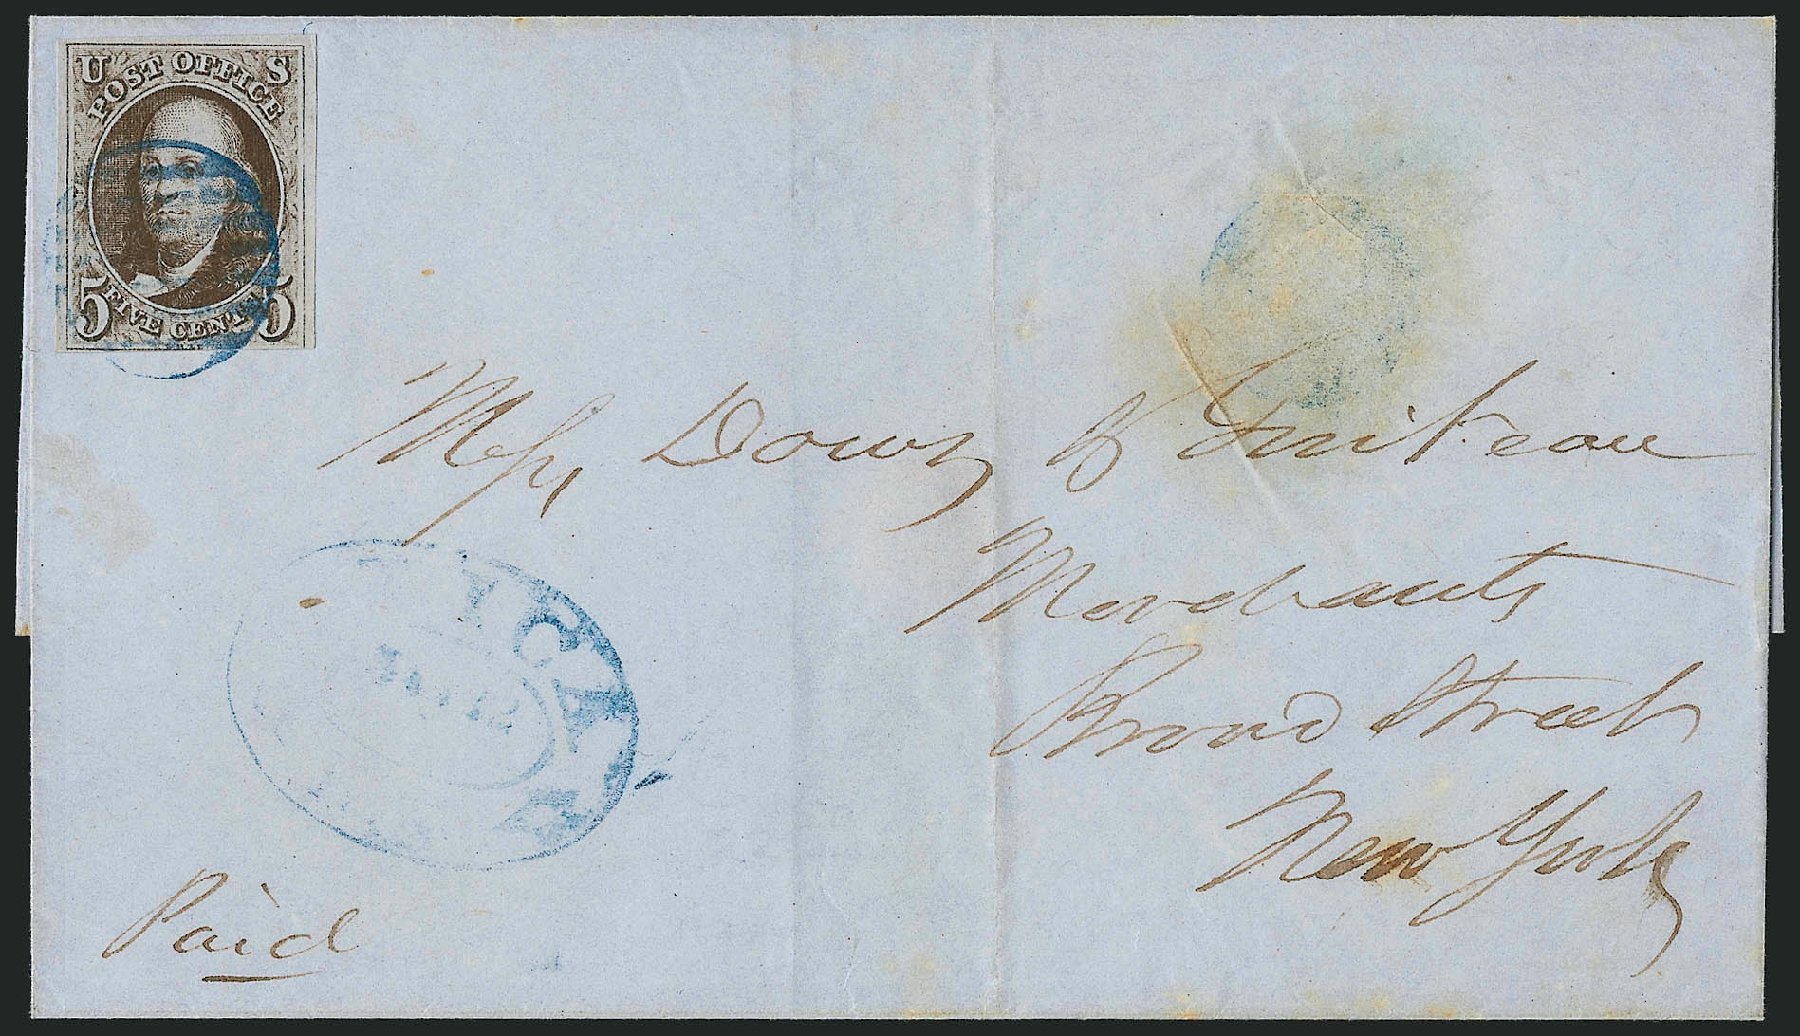 U S
POST OFFICE
5 FIVE CENTS 5
Messrs Down &
Merchants
Broad Street
New York
Paid